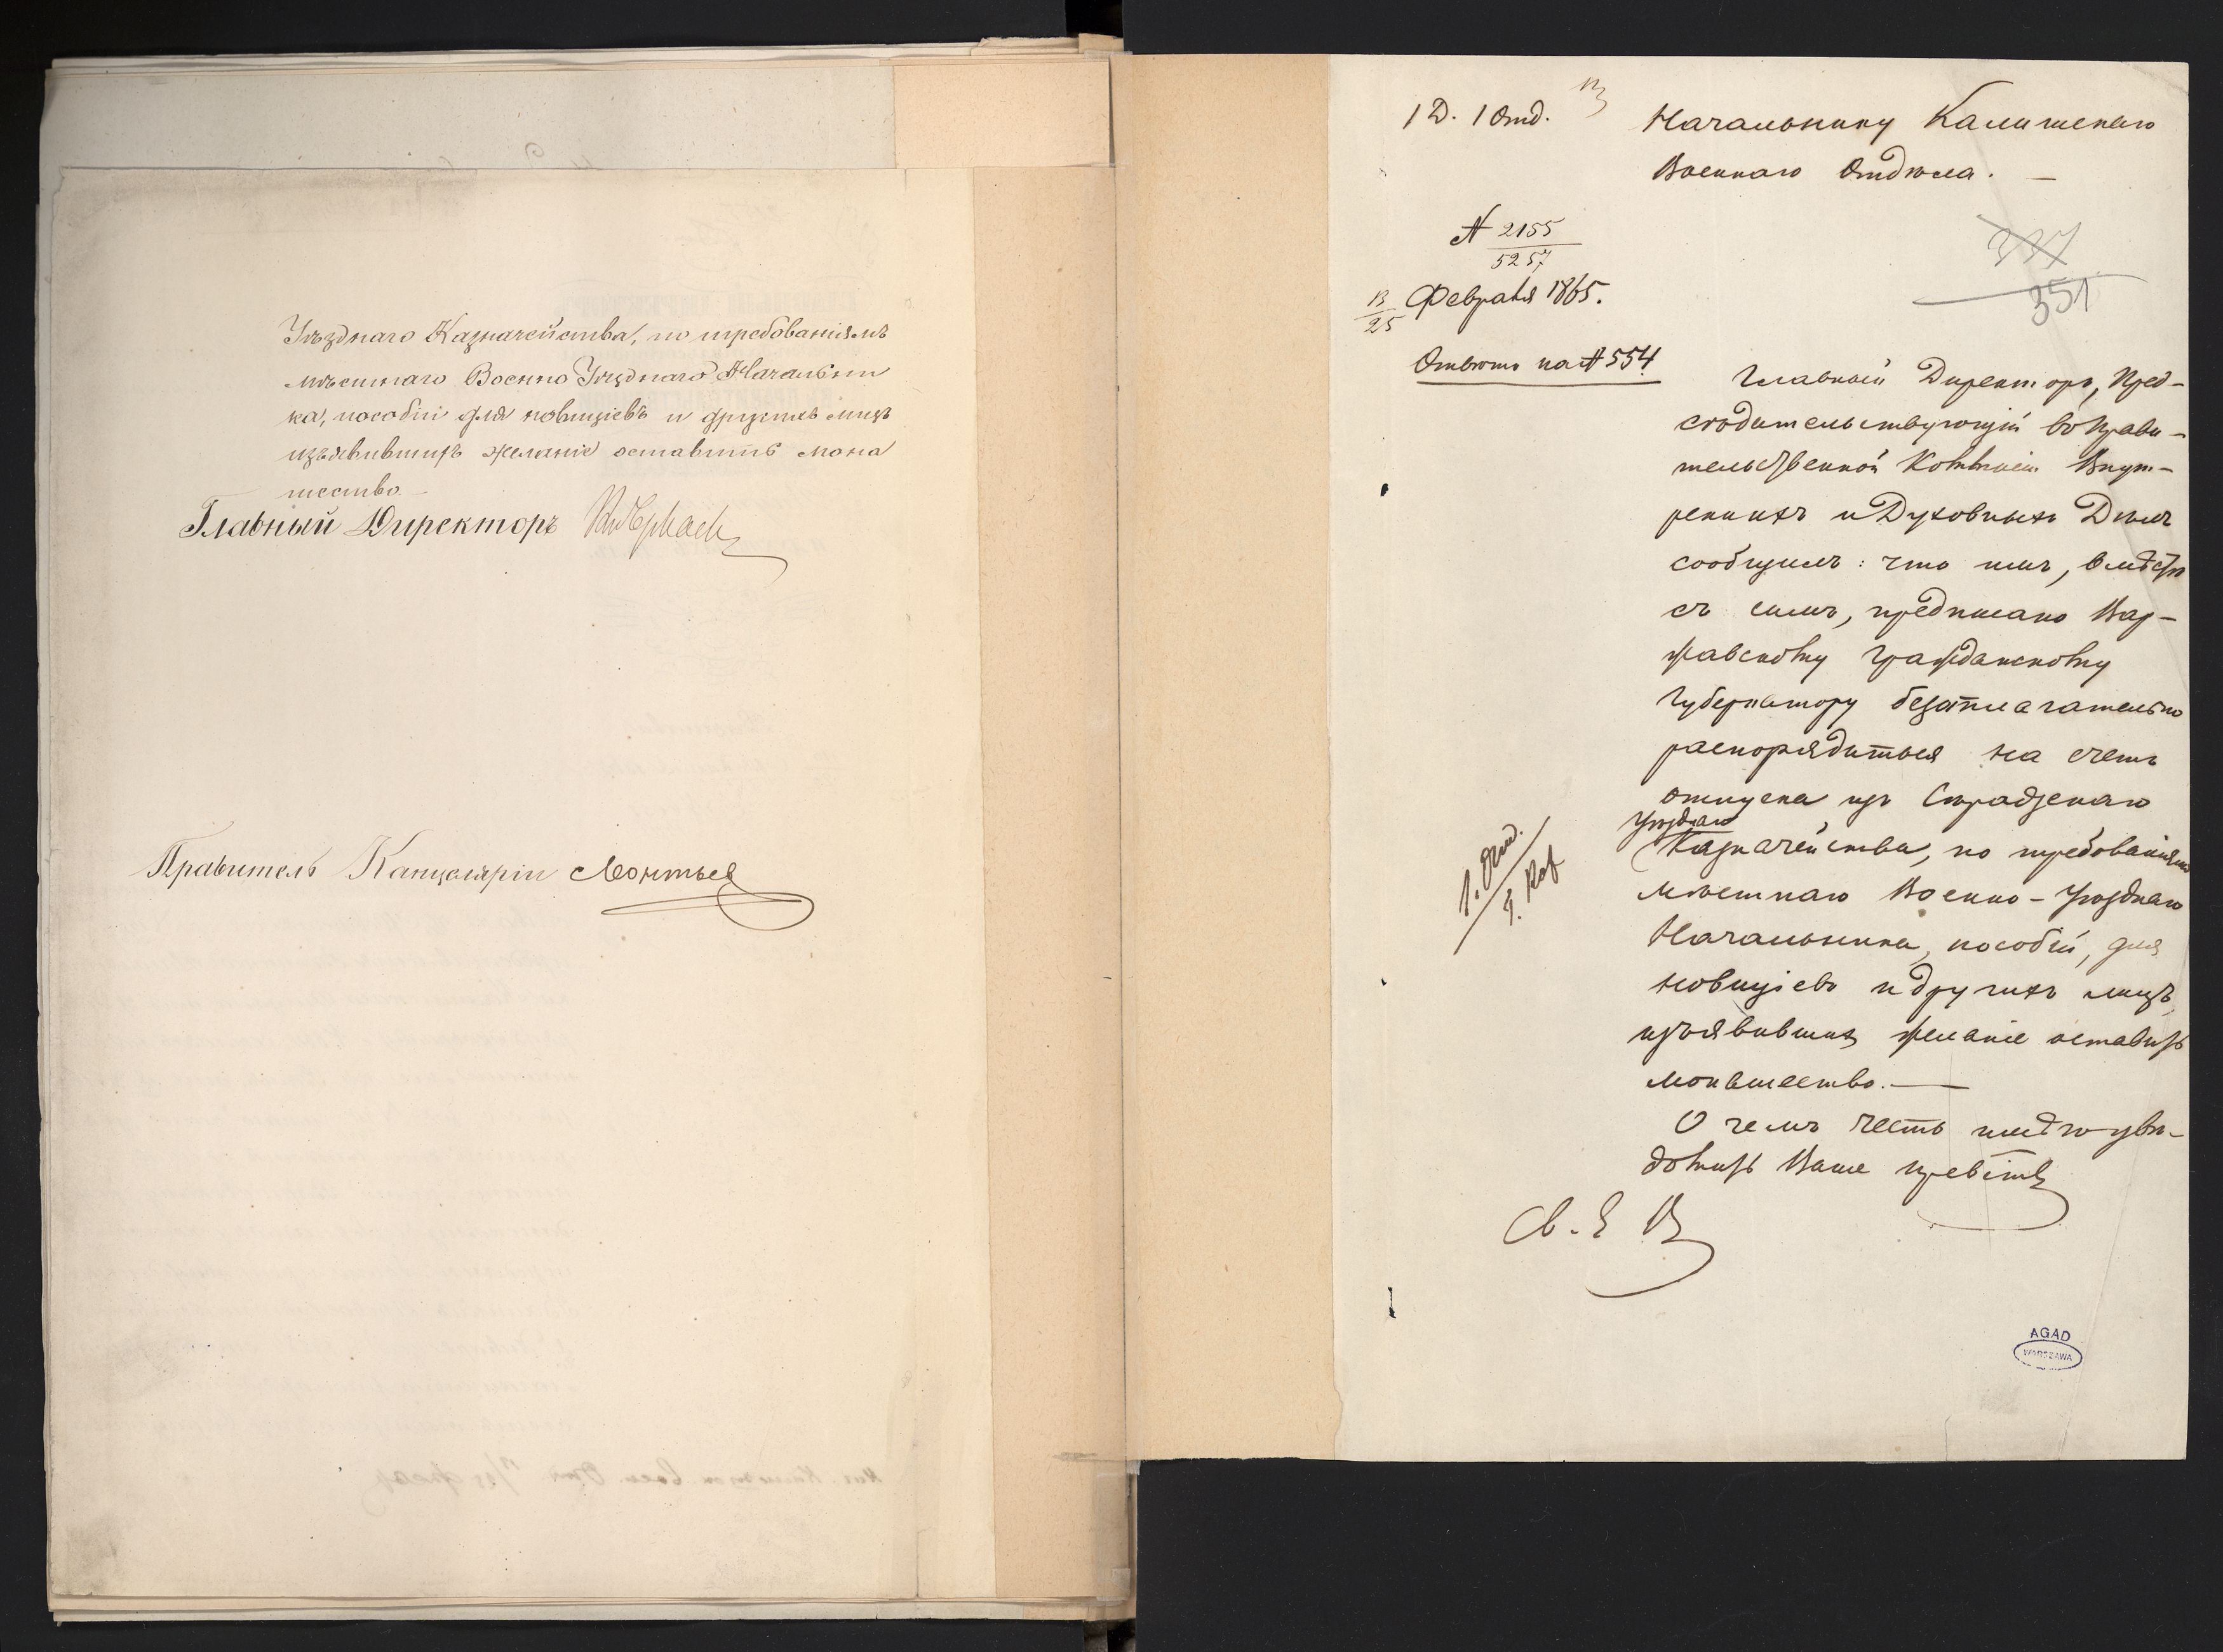 Уѣзднаго Казначейства, по требованіямъ
мѣстнаго Военно Уѣзднаго Начальни
ка, пособій для новиціевъ и другихъ лицъ
изъявившихъ желаніе оставить мона
шество
Главный Директоръ
Правитель Канцеляріи Леонтьев
1 Д. 1 Отд.
Начальнику Калишскаго
Военнаго Отдѣла. —
№ 2155
5257
13 Февраля 1865.
25
337
351
Отвѣтъ на № 554
Главный Директоръ, Пред-
сѣдательствующій въ Прави-
тельственной Коммисіи Внут-
реннихъ и Духовныхъ Дѣлъ
сообщилъ: что имъ, вмѣстѣ
съ симъ, предписано Вар-
шавскому Гражданскому
Губернатору безотлагательно
распорядиться на счетъ
отпуска изъ Сѣрадзскаго
Уѣзднаго
Казначейства, по требованіямъ
мѣстнаго Военно-Уѣзднаго
Начальника, пособій, для
новиціевъ и другихъ лицъ,
изъявившихъ желаніе оставить
монашество. —
О чемъ честь имѣю увѣ-
домить Ваше прев-ство
1. Отд.
AGAD
WARSZAWA